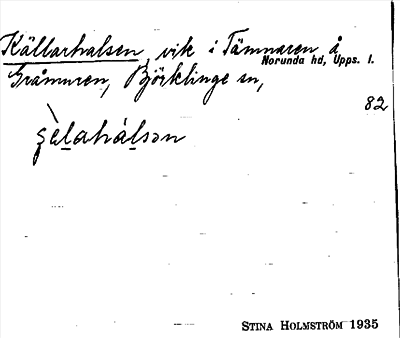 Källarhalsen, vik i Tämnaren å
Norunda hd, Upps. l.
Gråmuren, Björklinge sn,
82
STINA HOLMSTRÖM 1935